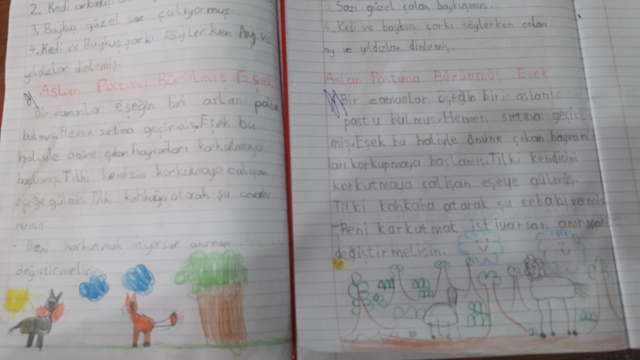 2. Kedi
3. Baykuş güzel saz çalıyormuş
4. Kedi ve Baykuş şarkı söylerken Ay ve
yıldızlar dinlemiş.
Aslan Postuna Bürünmüş Eşek
Bir zamanlar eşeğin biri aslan postu
bulmuş. Hemen sırtına geçirmiş. Eşek bu
haliyle önüne çıkan hayvanları korkutmaya
başlamış. Tilki kendisini korkutmaya çalışan
eşeğe gülmüş. Tilki kahkaha atarak şu cevabı
vermiş
- Beni korkutmak istiyorsan anırman
değiştirmelisin.
Sazı güzel çalan baykuşmuş.
4. Kedi ve baykuş şarkı söylerken onları
ay ve yıldızlar dinlemiş.
Aslan Postuna Bürünmüş Eşek
Bir zamanlar eşeğin biri aslanıc
postu bulmuş. Hemen sırtına geçir
miş. Eşek bu haliyle önüne çıkan hayvanı
ları korkuptmaya başlamış. Tilki kendisini
korkutmaya çalışan eşeye gülmüş.
Tilki kahkaha atarak şu cebabı vermiş
-Beni korkutmak istiyorsan anırman
değiştirmelicin.